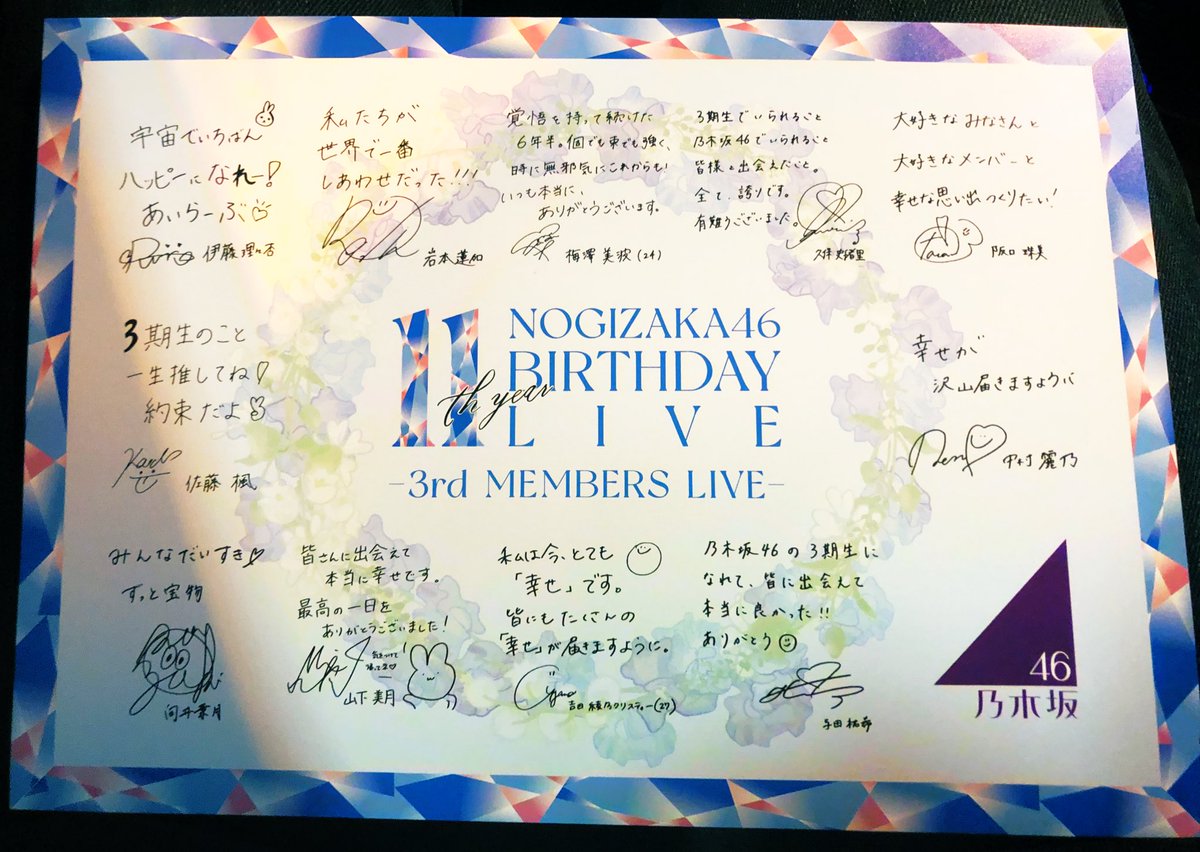 宇宙でいちばん
ハッピーになれー!
あいらーぶ
伊藤理々杏
私たちが
世界で一番
しあわせだった!!!
岩本蓮加
覚悟を持って続けた
6年半。個でも束でも強く、
時に無邪気にこれからも!
いつも本当に、
ありがとうございます。
梅澤美波(24)
3期生でいられること
乃木坂46でいられること
皆様と出会えたこと。
全て、誇りです。
有難うございました。
久保史緒里
大好きなみなさんと
大好きなメンバーと
幸せな思い出つくりたい!
阪口珠美
3期生のこと
一生推してね!
約束だよ
佐藤楓
11th year
NOGIZAKA46
BIRTHDAY
LIVE
-3rd MEMBERS LIVE-
幸せが
沢山届きますように
Reno
中村麗乃
みんなだいすき
ずっと宝物
向井葉月
皆さんに出会えて
本当に幸せです。
最高の一日を
ありがとうございました!
気をつけて
帰ってネ
山下美月
私は今、とても
「幸せ」です。
皆にもたくさんの
「幸せ」が届きますように。
吉田綾乃クリスティー(27)
乃木坂46の3期生に
なれて、皆に出会えて
本当に良かった!!
ありがとう
与田祐希
46
乃木坂